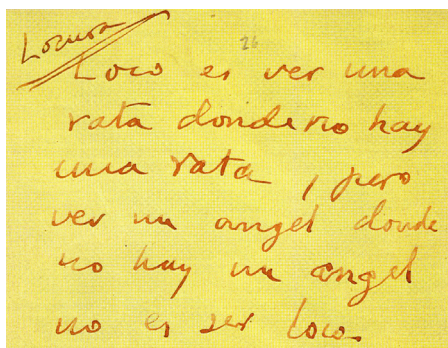 Locura
26
Loco es ver una
rata donde no hay
una rata, pero
ver un angel donde
no hay un angel
no es ser loco.